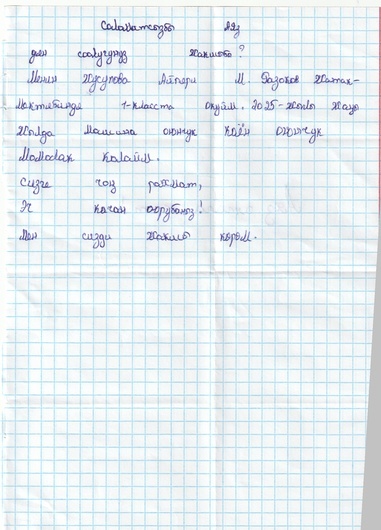 Саламатсызбы Аяз
ден соолугунуз жакшыбы?
Менин Жусупова Айпери М. Разаков жатак-
мектебинде 1-класста окуйм. 2025-жылы жаңы
жылда Машина оюнчук коён оюнчук
Момолак калайм.
Сизге чоң рахмат,
Эч качан оорубаңыз!
Мен сизди жакшы көрөм.